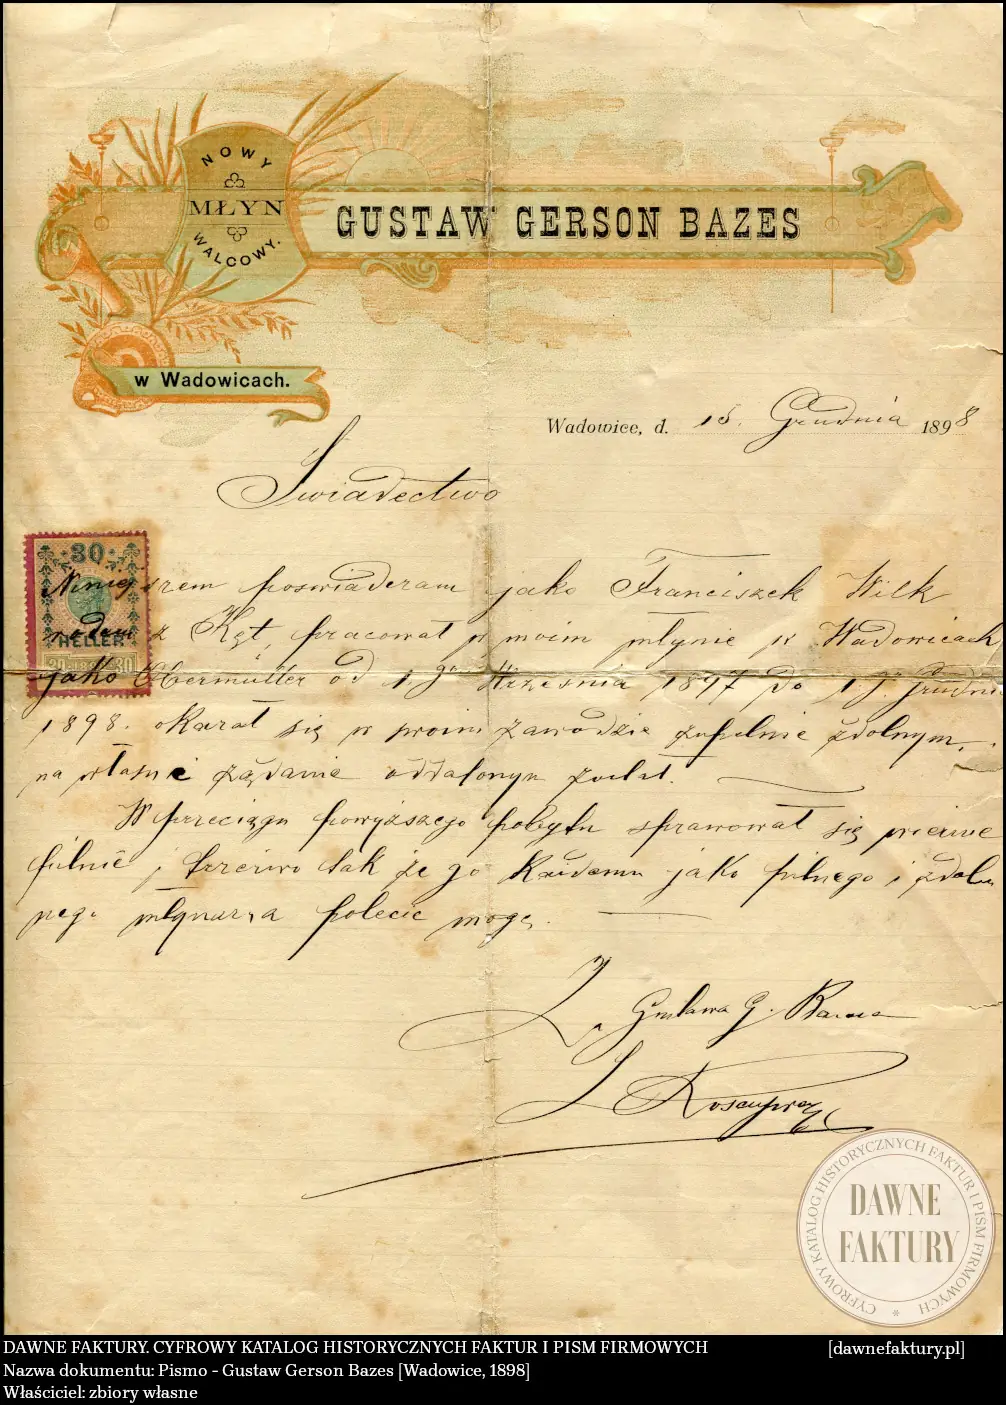 NOWY
MŁYN
WALCOWY.
GUSTAW GERSON BAZES
w Wadowicach.
Wadowice, d. 15. Grudnia 1898
Świadectwo
30
HELLER
Niniejszem poświadczam jako Franciszek Wilk
rodem z Kęt, pracował w moim młynie w Wadowicach
jako Obermüller od 1go Września 1897 do 1go Grudnia
1898. okazał się w swoim zawodzie zupełnie zdolnym,
na własne żądanie oddalonym został.
W przeciągu powyższego pobytu sprawował się wiernie
pilnie i trzeźwo tak że go każdemu jako pilnego i zdol
nego młynarza polecić mogę.
Gustawa G. Bazes
DAWNE
FAKTURY
CYFROWY KATALOG HISTORYCZNYCH FAKTUR I PISM FIRMOWYCH
DAWNE FAKTURY. CYFROWY KATALOG HISTORYCZNYCH FAKTUR I PISM FIRMOWYCH [dawnefaktury.pl]
Nazwa dokumentu: Pismo - Gustaw Gerson Bazes [Wadowice, 1898]
Właściciel: zbiory własne